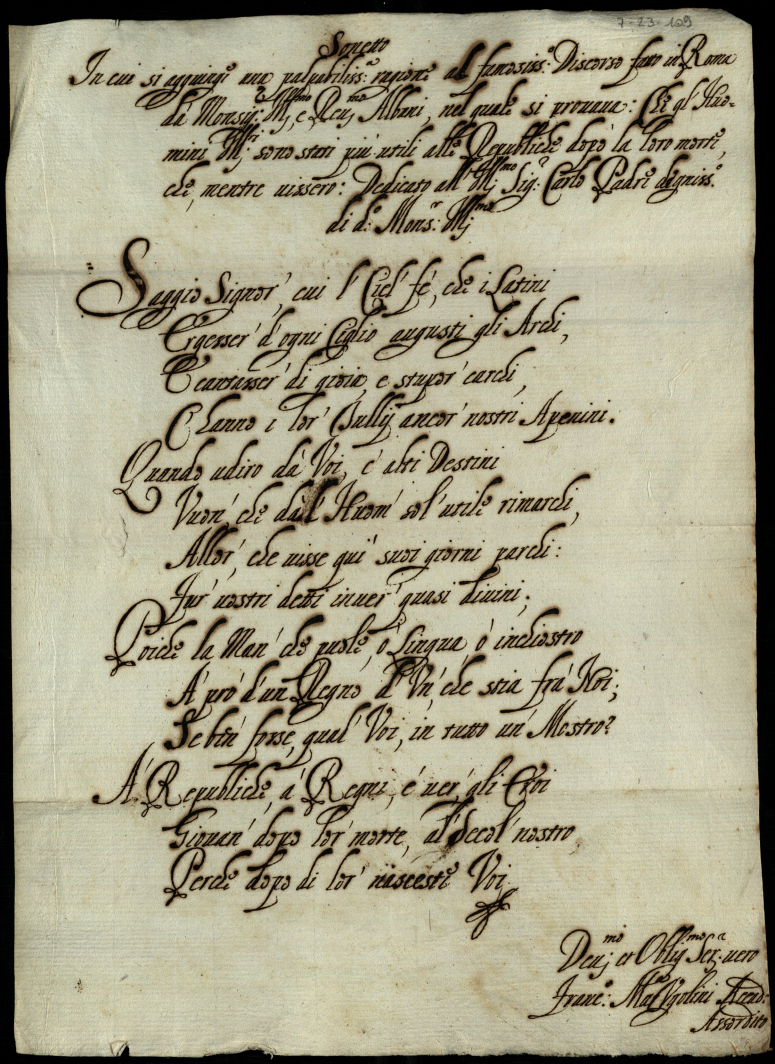 7-23-109
Sonetto
In cui si aggiungie una palpabiliss:ª ragione al famosiss:º Discorso fatto in Roma
da Monsig:r Ill:mo, e Reu:mo Albani, nel quale si prouaua: Che gl'Huo-
mini Ill:tri sono stati più utili alle Republiche dopò la loro morte,
che, mentre uissero: Dedicato all'Ill:mo Sig:r Carlo Padre digniss:º
di d:º Mons:r Ill:mo
Saggio Signor', cui l'Ciel' fè, che i Latini
Ergesser' d'ogni Ciglio augusti gli Archi,
E cantasser' di gioia, e stupor' carchi,
C'hanno i lor' Tullij ancor' nostri Apenini.
Quando udiro dà Voi, e alti Destini
Vuon', che dàl'Huom' sol' utile rimarchi,
Allor', che uisse qui' suoi giorni parchi:
Fur' uostri detti inuer' quasi diuini;
Poiche la Man' che puole, ò Lingua ò inchiostro
A' prò d'un Regno d'Vn', che stia frà Noi;
Se ben' forse, qual' Voi, in tutto un' Mostro?
A' Republiche, à Regni, è uer, gli Eroi
Giouan' dopo lor' morte, al' Secol' nostro
Perche dopo di lor' nasceste Voi.
Deu:mo et Oblig:mo Ser:r uero
Franc:º M:ª Vgolini Accad:
Assordito